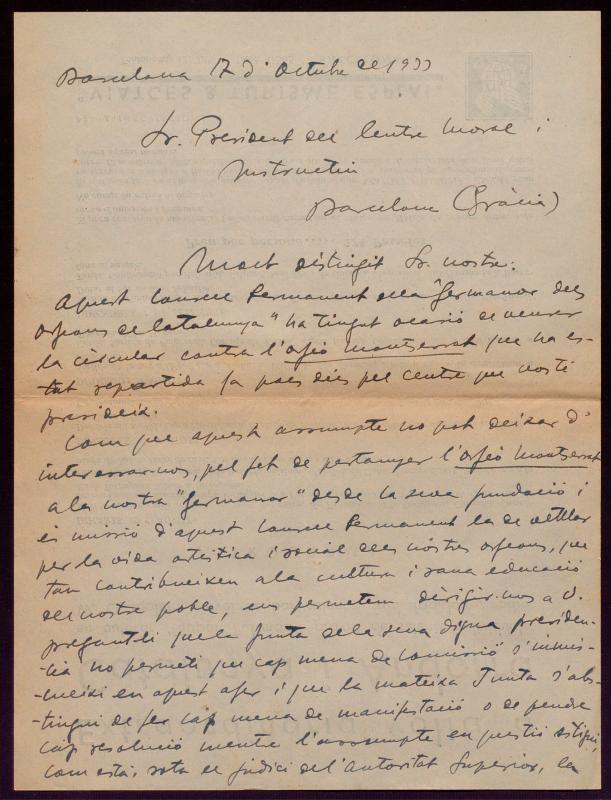 Barcelona 17 d'Octubre del 1933
Sr. President del Centre Moral i
Instructiu
Barcelona (Gràcia)
Molt distingit Sr. nostre:
Aquest Consell Permanent de la "Germanor dels
Orfeons de Catalunya" ha tingut ocasió de veurer
la circular contra l'Orfeó Montserrat que ha es-
tat repartida fa pocs dies pel centre que vostè
presideix.
Com que aquest assumpte no pot deixar d'
interessar-nos, pel fet de pertanyer l'Orfeó Montserrat
a la nostra "Germanor" desde la seva fundació i
és missió d'aquest Consell Permanent la de vetllar
per la vida artística i social dels nostres orfeons, que
tan contribueixen a la cultura i sana educació
del nostre poble, ens permetem dirigir-nos a V.
pregant-li que la Junta de la seva digna presiden-
-cia no permeti que cap mena de comissió s'inmis-
-cueixi en aquest afer i que la mateixa Junta s'abs-
-tingui de fer cap mena de manifestació o de pendre
cap resolució mentre l'assumpte en qüestió estigui,
com està, sota el judici de l'Autoritat Superior, la
VIATGES & TURISME ESPLAI